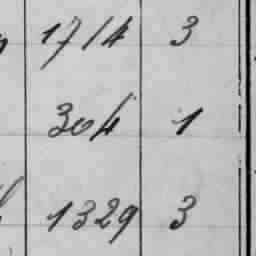 1714 3
304 1
1329 3